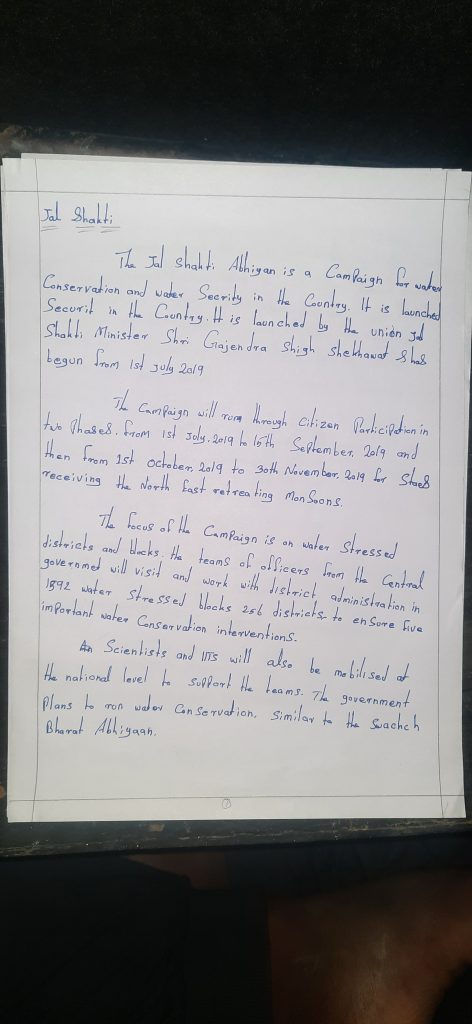 Jal Shakti
The Jal shakti Abhigan is a Campaign for water
Conservation and water Secrity in the Country. It is launched
Securit in the Country. It is launched by the union Jal
Shakti Minister Shri Gajendra Shigh shekhawat & has
begun from 1st July 2019
The Campaign will run through Citizen Participation in
two Phases. from 1st July. 2019 to 15th September, 2019 and
then from 1st October, 2019 to 30th November, 2019 for Staes
receiving the North East retreating Monsoons.
The focus of the Campaign is on water Stressed
districts and blocks. He teams of officers from the Central
governmet will visit and work with district administration in
1592 water Stressed blocks 256 districts. to ensure five
important water Conservation interventions.
Scientists and IITS will also be mobilised at
the national level to support the teams. The government
Plans to run water Conservation, similar to the Swachch
Bharat Abhiyaan.
1